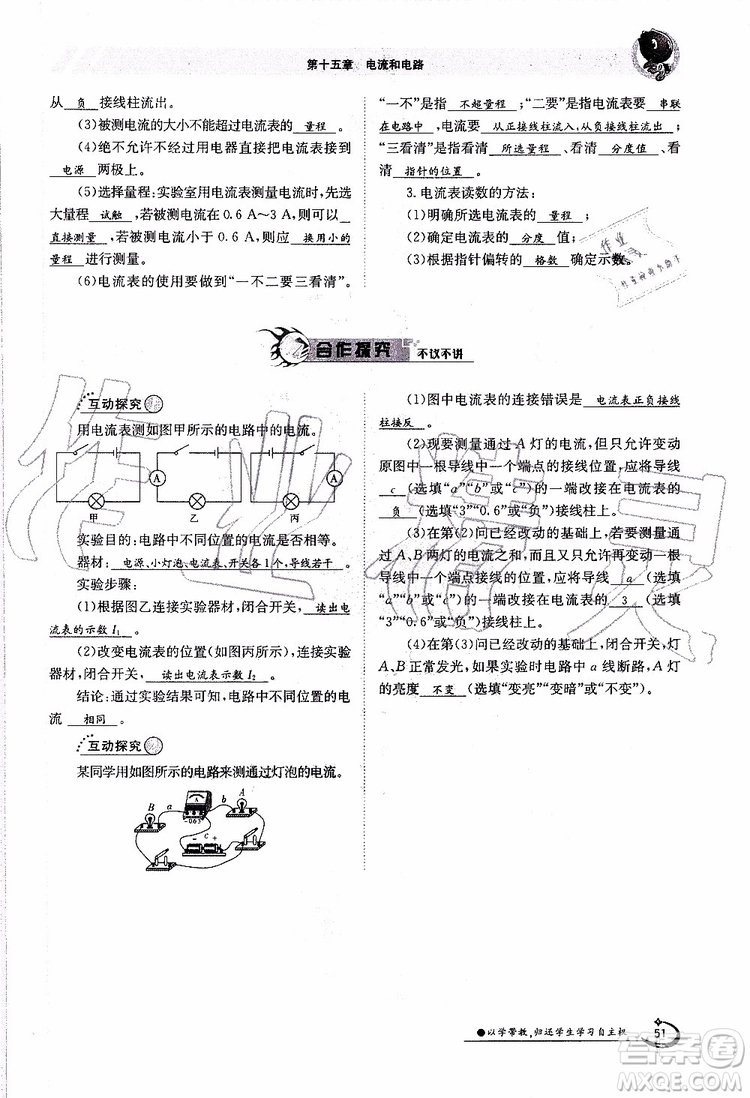 第十五章 电流和电路
从 负 接线柱流出。
(3)被测电流的大小不能超过电流表的 量程 。
(4)绝不允许不经过用电器直接把电流表接到
电源 两极上。
(5)选择量程:实验室用电流表测量电流时,先选
大量程 试触 ,若被测电流在0.6 A~3 A,则可以
直接测量 ,若被测电流小于0.6 A,则 换用小的
量程 进行测量。
(6)电流表的使用要做到“一不二要三看清”。
“一不”是指 不超量程 ;“二要”是指电流表要 串联
在电路中 ,电流要 从正接线柱流入,从负接线柱流出 ;
“三看清”是指看清 所选量程 、看清 分度值 、看
清 指针的位置 。
3.电流表读数的方法:
(1)明确所选电流表的 量程 ;
(2)确定电流表的 分度 值;
(3)根据指针偏转的 格数 确定示数。
合作探究 不议不讲
互动探究
用电流表测如图甲所示的电路中的电流。
A A
甲 乙 丙
实验目的:电路中不同位置的电流是否相等。
器材: 电源、小灯泡、电流表、开关各1个,导线若干
实验步骤:
(1)根据图乙连接实验器材,闭合开关, 读出电
流表的示数I₁ 。
(2)改变电流表的位置(如图丙所示),连接实验
器材,闭合开关, 读出电流表示数I₂ 。
结论:通过实验结果可知,电路中不同位置的电
流 相同 。
互动探究
某同学用如图所示的电路来测通过灯泡的电流。
B a b A
c
(1)图中电流表的连接错误是 电流表正负接线
柱接反 。
(2)现要测量通过A灯的电流,但只允许变动
原图中一根导线中一个端点的接线位置,应将导线
c (选填“a”“b”或“c”)的一端改接在电流表的
负 (选填“3”“0.6”或“负”)接线柱上。
(3)在第(2)问已经改动的基础上,若需测量通
过A、B两灯的电流之和,而且只允许再变动一根
导线中一个端点接线的位置,应将导线 a (选填
“a”“b”或“c”)的一端改接在电流表的 3 (选填
“3”“0.6”或“负”)接线柱上。
(4)在第(3)问已经改动的基础上,闭合开关,灯
A、B正常发光,如果实验时电路中a线断路,A灯
的亮度 不变 (选填“变亮”“变暗”或“不变”)。
以学带教,归还学生学习自主权
51
答案圈
MXQE.COM